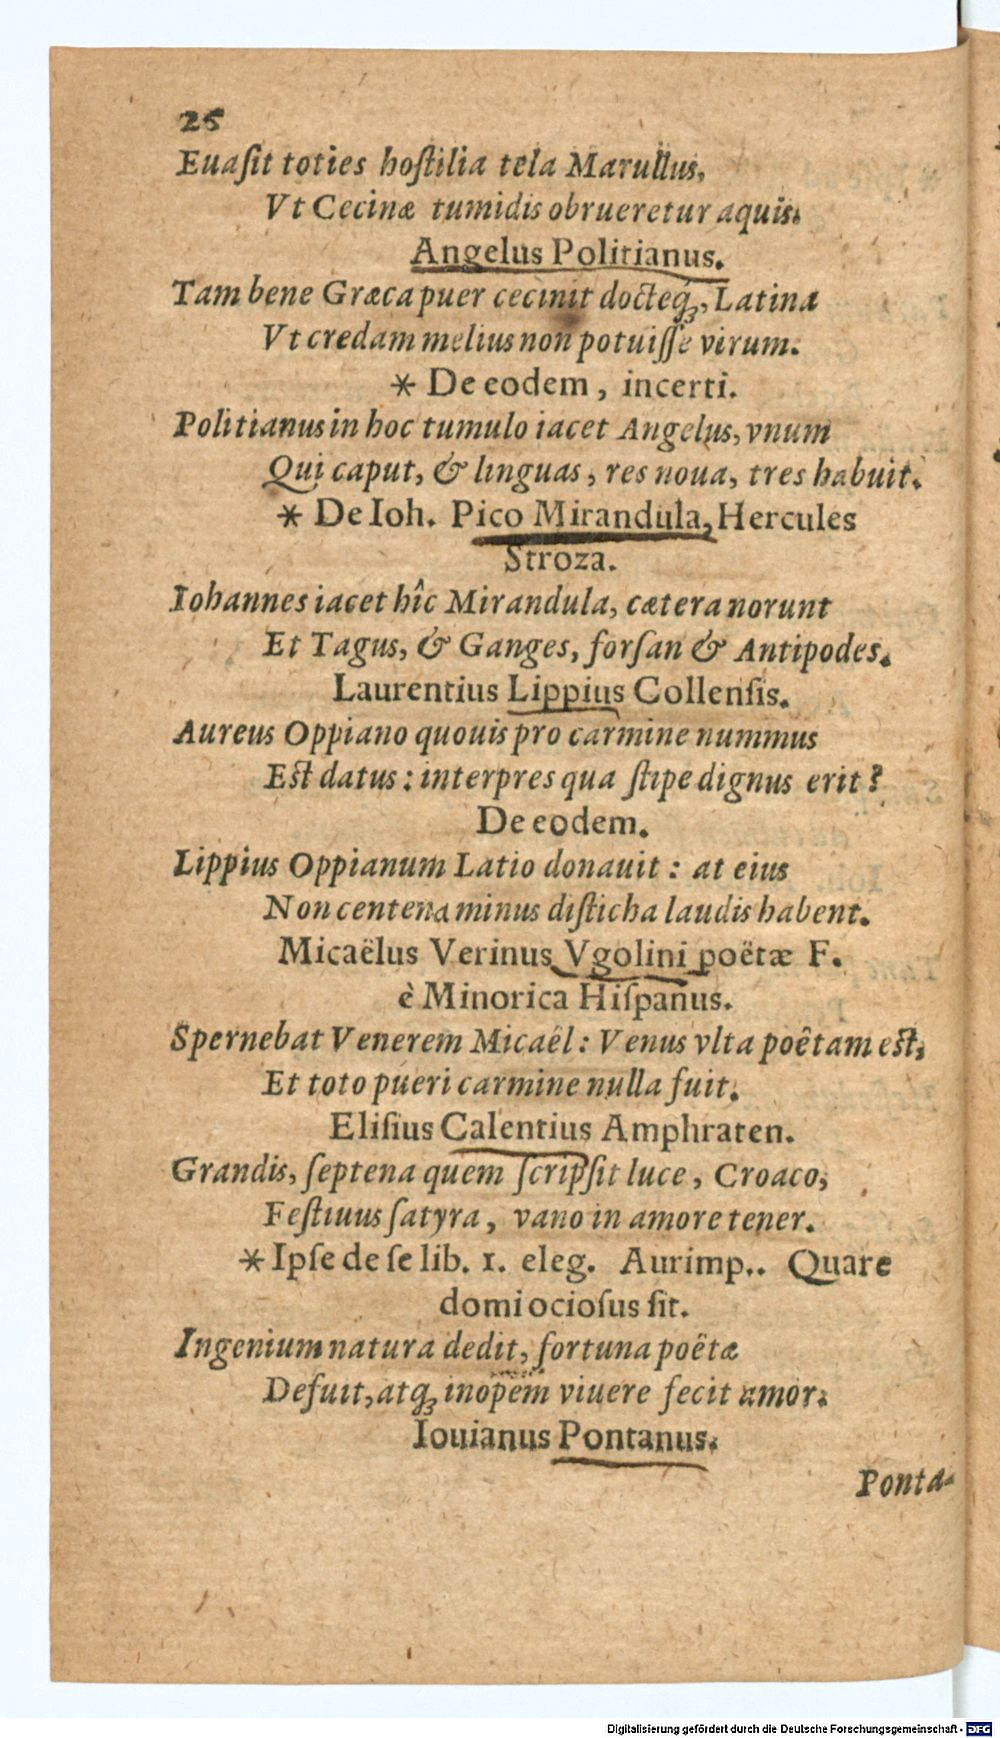 26
Euaſit toties hoſtilia tela Marullus,
Vt Cecinæ tumidis obrueretur aquis.
Angelus Politianus.
Tam bene Græca puer cecinit docteq́;, Latina
Vt credam melius non potuiſſe virum.
* De eodem, incerti.
Politianus in hoc tumulo iacet Angelus, vnum
Qui caput, & linguas, res noua, tres habuit.
* De Ioh. Pico Mirandula, Hercules
Stroza.
Iohannes iacet hîc Mirandula, cætera norunt
Et Tagus, & Ganges, forſan & Antipodes.
Laurentius Lippius Collenſis.
Aureus Oppiano quouis pro carmine nummus
Eſt datus: interpres qua ſtipe dignus erit?
De eodem.
Lippius Oppianum Latio donauit: at eius
Non centena minus diſticha laudis habent.
Micaëlus Verinus Vgolini poëtæ F.
è Minorica Hiſpanus.
Spernebat Venerem Micaël: Venus vlta poêtam eſt,
Et toto pueri carmine nulla fuit.
Eliſius Calentius Amphraten.
Grandis, ſeptena quem ſcripſit luce, Croaco,
Feſtiuus ſatyra, vano in amore tener.
* Ipſe de ſe lib. 1. eleg. Aurimp.. Quare
domi ocioſus ſit.
Ingenium natura dedit, fortuna poëtæ
Defuit, atq; inopem viuere fecit amor.
Iouianus Pontanus.
Ponta-
Digitalisierung gefördert durch die Deutsche Forschungsgemeinschaft - DFG